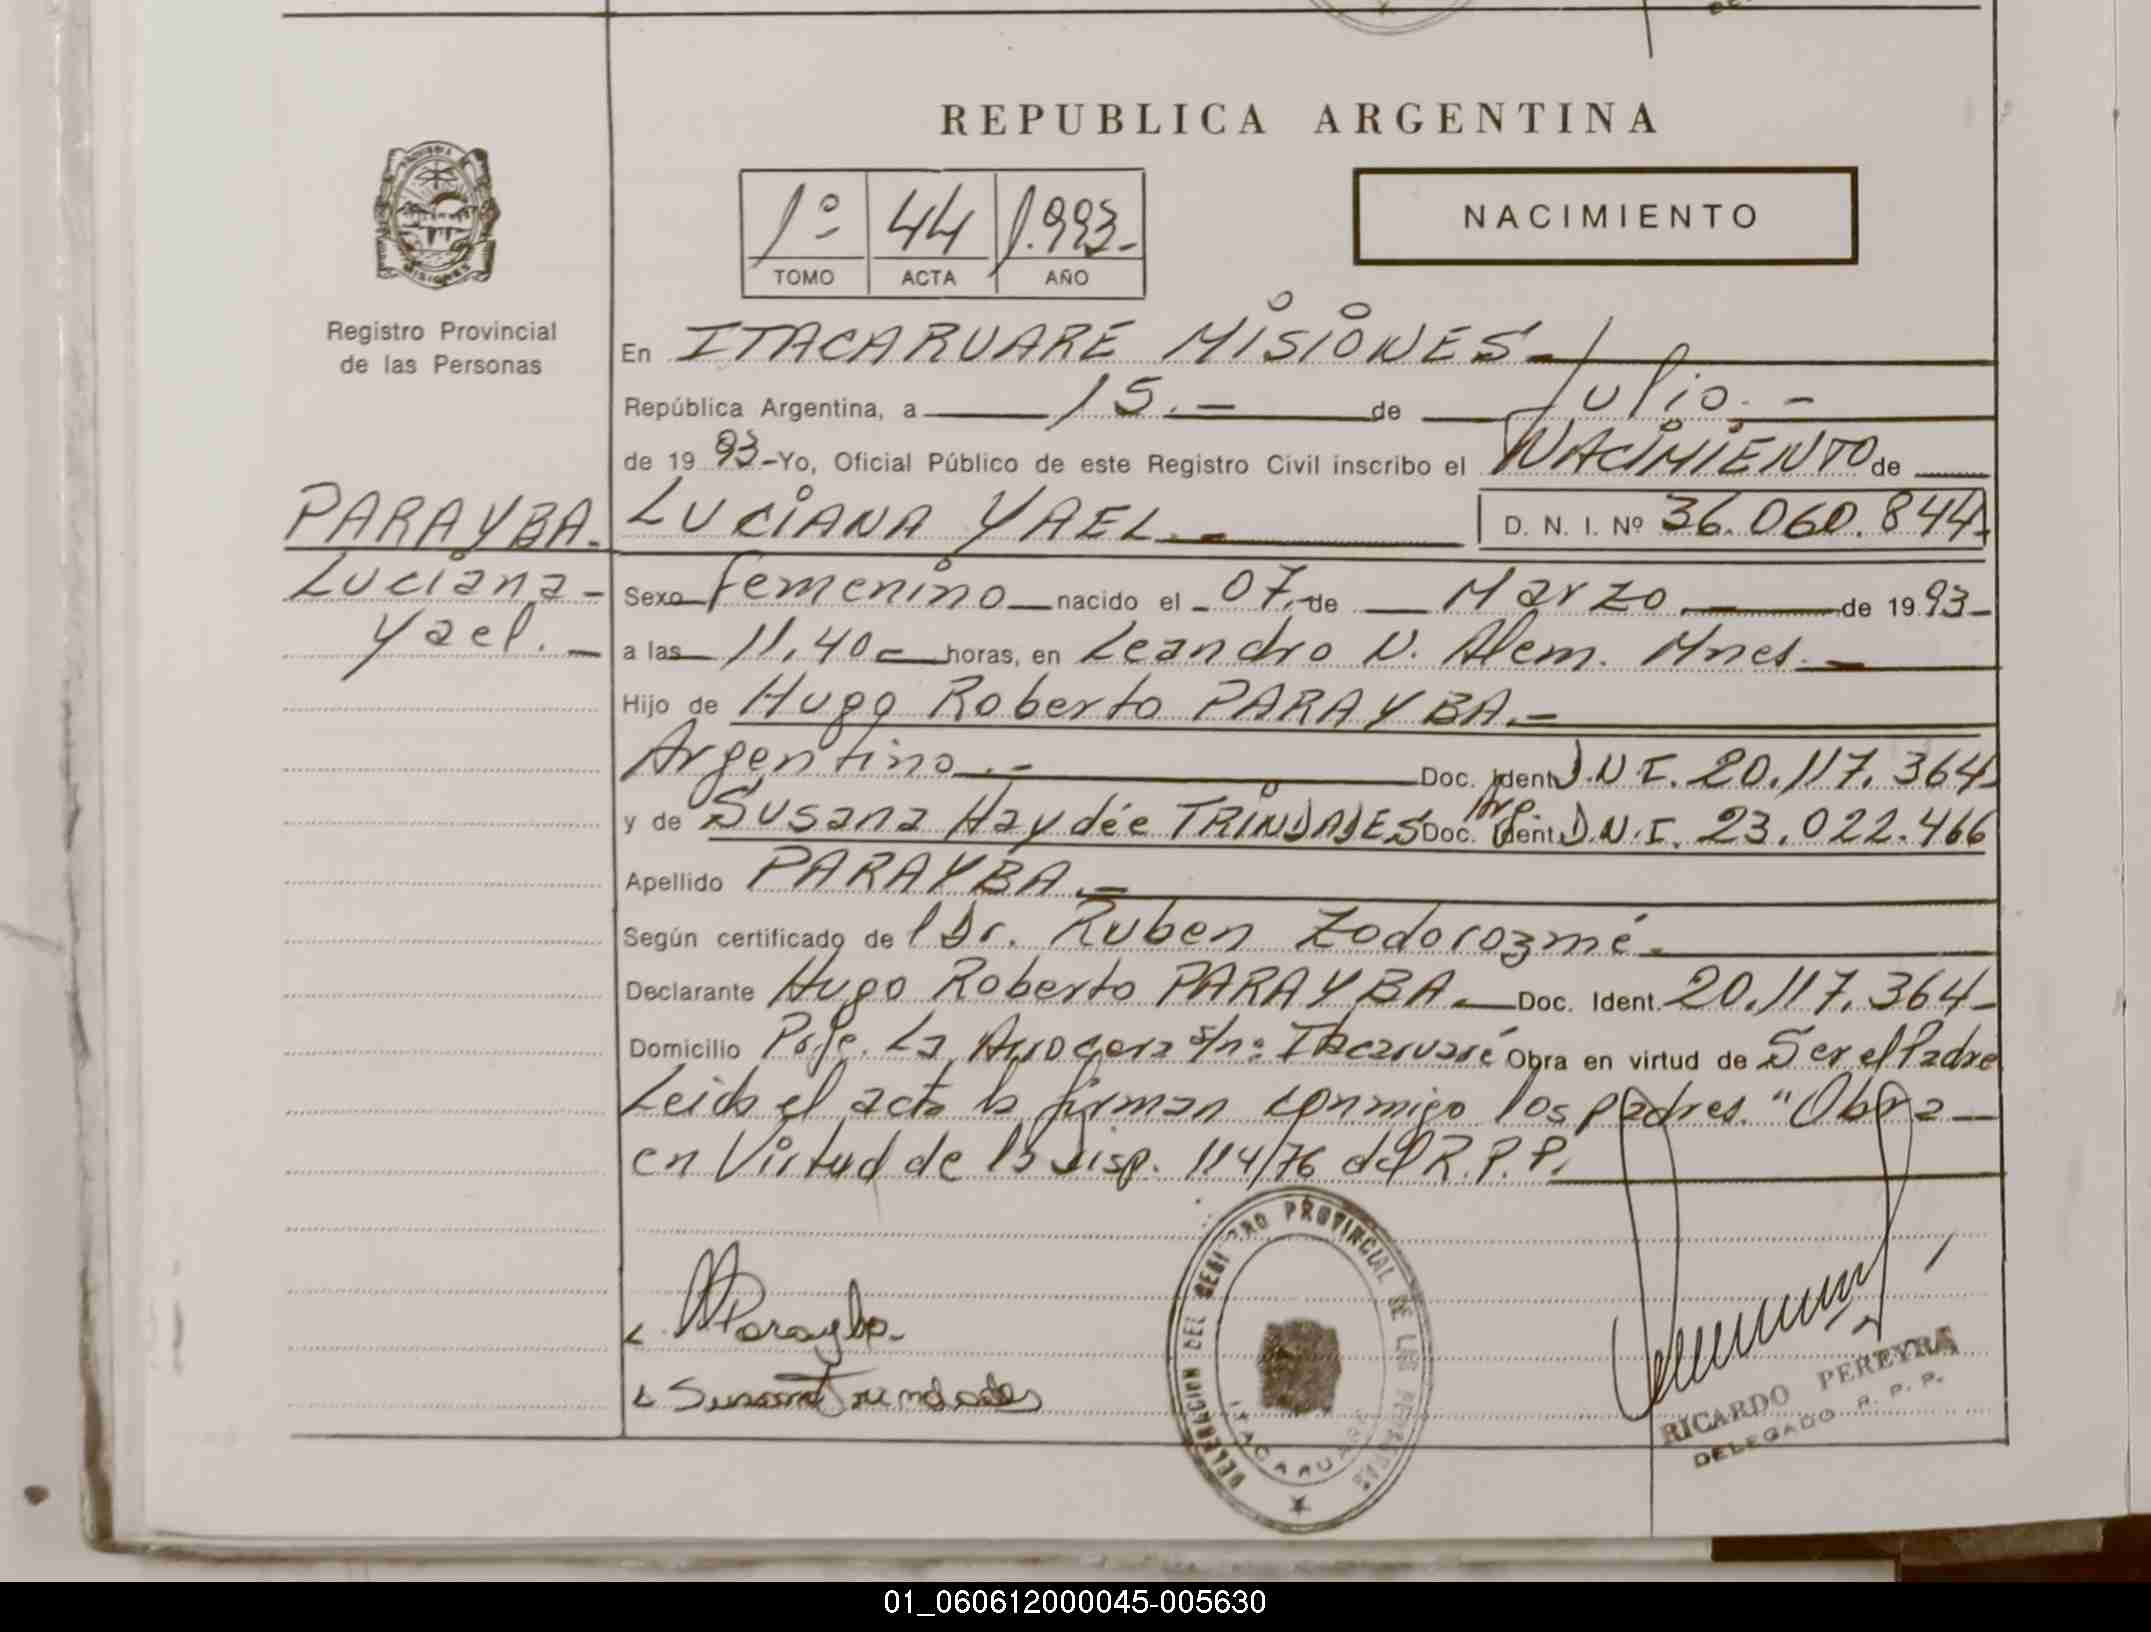 REPUBLICA ARGENTINA
PROVINCIA
MISIONES
Registro Provincial
de las Personas
1º 44 1.993-
TOMO ACTA AÑO
NACIMIENTO
En ITACARUARE MISIONES-
República Argentina, a 15.- de Julio.-
de 19 93-Yo, Oficial Público de este Registro Civil inscribo el NACIMIENTO de
PARAYBA.
Luciana-
Yael.-
LUCIANA YAEL.- D. N. I. Nº 36.060.844-
Sexo femenino nacido el 07.-de Marzo.- de 19 93-
a las 11,40- horas, en Leandro N. Alem. Mnes.-
Hijo de Hugo Roberto PARAYBA.-
Argentino.- Doc. Ident. D.N.I. 20.117.364-
y de Susana Haydée TRINDADES Arg. Doc. Ident. D.N.I. 23.022.466
Apellido PARAYBA.-
Según certificado de l Dr. Ruben Zodorozmé-
Declarante Hugo Roberto PARAYBA.- Doc. Ident. 20.117.364-
Domicilio La s/nº Itacaruaré Obra en virtud de Ser el Padre
Leida el acta la firman conmigo los padres. "Obra-
en Virtud de la Disp. 114/76 del R.P.P.
Parayba.-
Susana Trindades
DELEGACION DEL REGISTRO PROVINCIAL DE LAS PERSONAS
ITACARUARE
RICARDO PEREYRA
DELEGADO R. P. P.
01_060612000045-005630